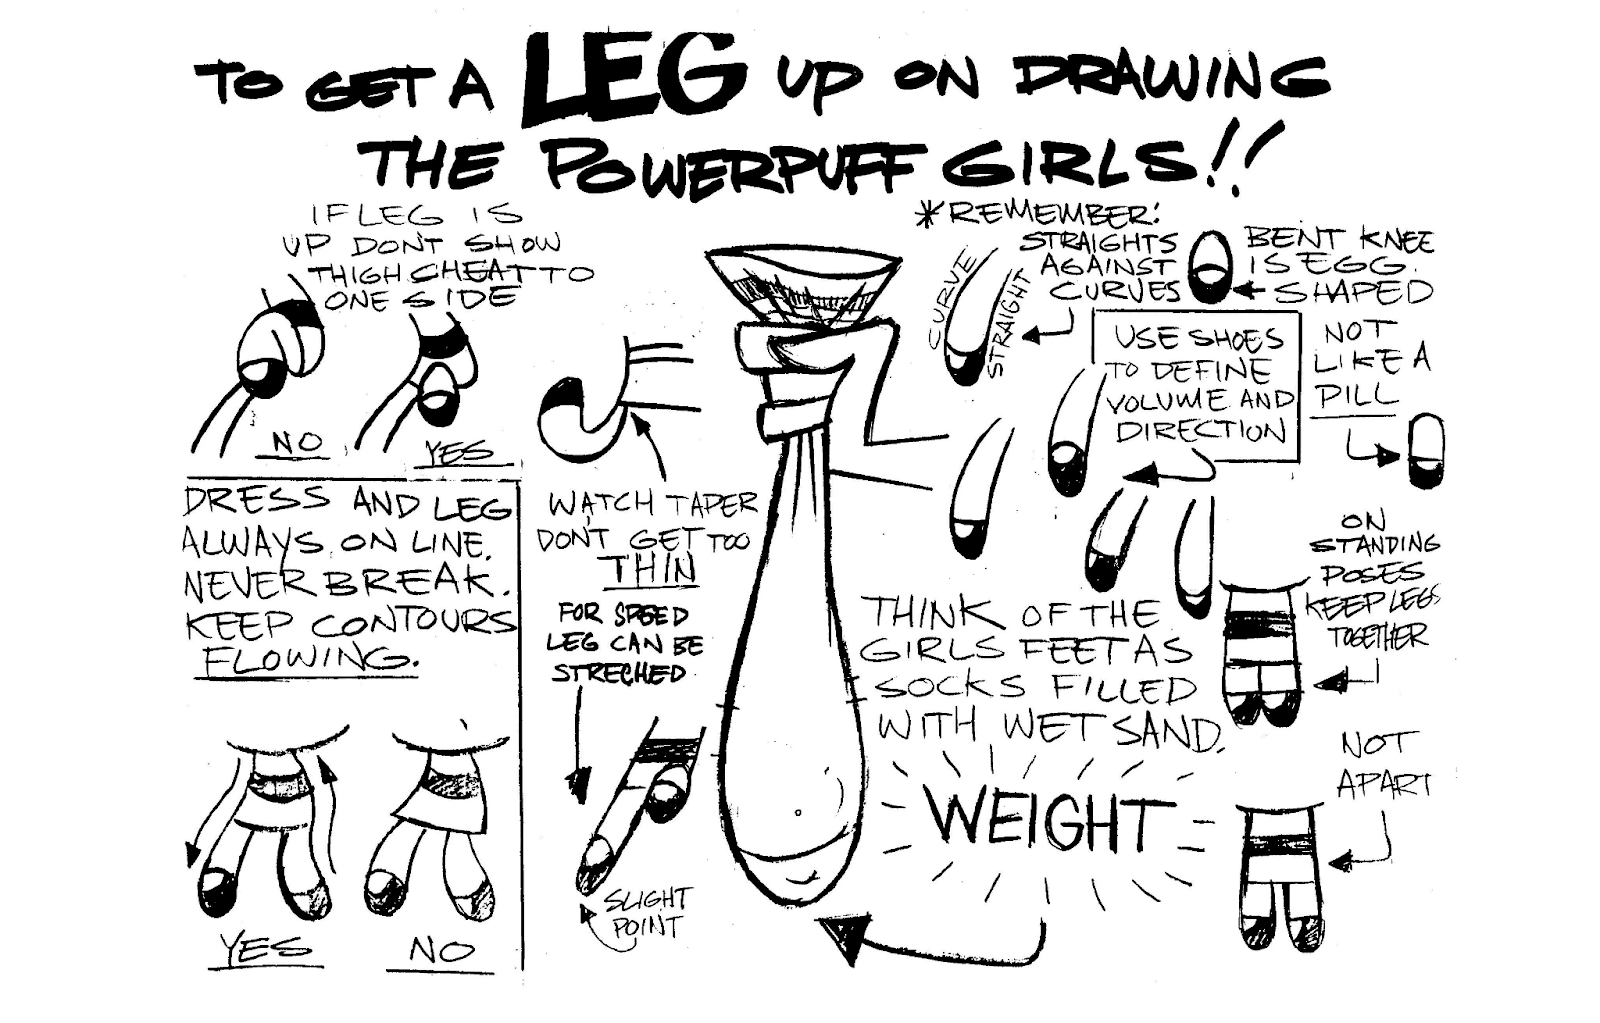 TO GET A LEG UP ON DRAWING
THE POWERPUFF GIRLS!!
IF LEG IS
UP DON'T SHOW
THIGH CHEAT TO
ONE SIDE
NO
YES
DRESS AND LEG
ALWAYS ON LINE.
NEVER BREAK.
KEEP CONTOURS
FLOWING.
YES
NO
WATCH TAPER
DON'T GET TOO
THIN
FOR SPEED
LEG CAN BE
STRECHED
SLIGHT
POINT
*REMEMBER:
STRAIGHTS
AGAINST
CURVES
CURVE
STRAIGHT
BENT KNEE
IS EGG
SHAPED
NOT
LIKE A
PILL
USE SHOES
TO DEFINE
VOLUME AND
DIRECTION
THINK OF THE
GIRLS FEET AS
SOCKS FILLED
WITH WET SAND.
WEIGHT
ON
STANDING
POSES
KEEP LEGS
TOGETHER
NOT
APART